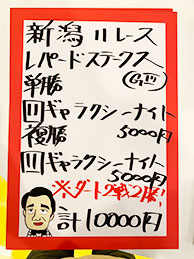 新潟11レース
レパードステークス
単勝 (GⅢ)
11 ギャラクシーナイト
複勝 5000円
11 ギャラクシーナイト
5000円
※ダート2戦2勝!
計10000円